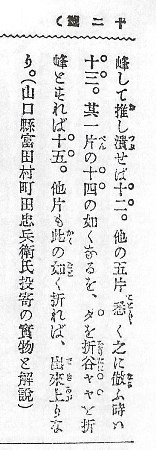 十二圖)
峰して推し潰せば十二。他の五片悉く之に倣ふ時い
十三。其一片の十四の如くなるを、タを折谷ャャと折
峰とすれば十五。他片も此の如く折れば、出來上りな
り。(山口縣富田村町田忠兵衞氏投寄の實物と解説)